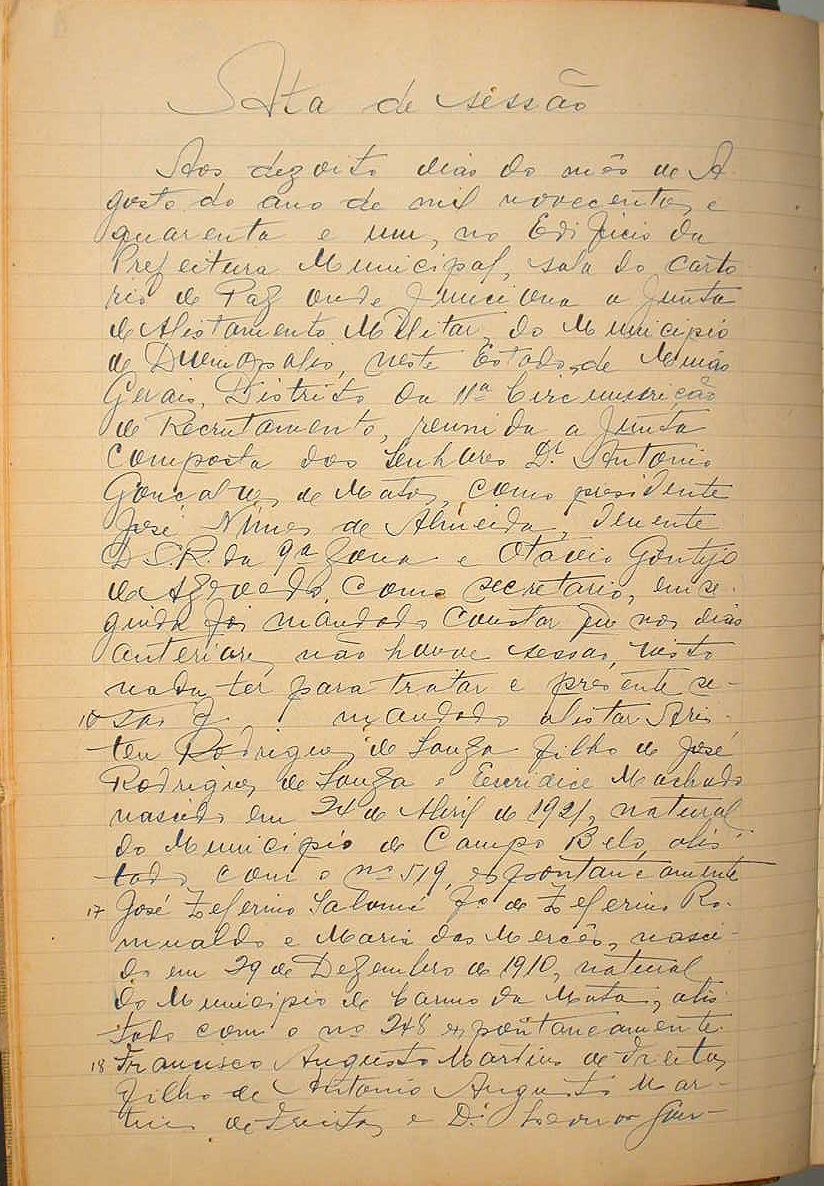 Ata de sessão
Aos dezoito dias do mês de A
gosto do ano de mil novecentos e
quarenta e um, no Edificio da
Prefeitura Municipal, sala do carto
rio de Paz onde funciona a Junta
de Alistamento Militar do Municipio
de Divinopolis, neste Estado de Minas
Gerais, Distrito da 11ª Circunscrição
de Recrutamento, reunida a Junta
composta dos Senhores Dr. Antonio
Gonçalves de Matos, como presidente
José Nunes de Almeida, Tenente
D.S.R. da 9ª Zona e Otavio Gontijo
de Azevedo, como secretario, em se-
guida foi mandado constar que nos dias
anteriores não houve sessão, visto
nada ter para tratar e presente se-
mandado alistar Aris-
teu Rodrigues de Souza filho de José
Rodrigues de Souza e Euridice Machado
nascido em 24 de Abril de 1921, natural
do Municipio de Campo Belo, alis-
tado com o nº 519, espontaneamente
17 José Zeferino Salomé fº de Zeferino Ro-
mualdo e Maria das Mercês, nasci-
do em 29 de Dezembro de 1910, natural
do Municipio de Carmo da Mata, alis-
tado com o nº 248 espontaneamente.
18 Francisco Augusto Martins de Freitas
filho de Antonio Augusto Mar-
tins de Freitas e Dª